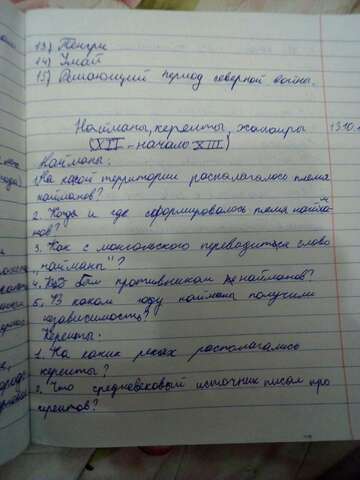 13) Тенгри
14) Умай
15) Решающий период северной войны.
Найманы, кереиты, жалаиры 13.10.
(XII - начало XIII)
Найманы:
1. На какой территории располагалось племя
найманов?
2. Когда и где сформировалось племя найма-
нов?
3. Как с монгольского переводиться слово
„найманы"?
4. Кто был противником найманов?
5. В каком году найманы получили
независимость?
Кереиты:
1. На каких реках располагались
кереиты?
2. Что средневековый источник писал про
кереитов?